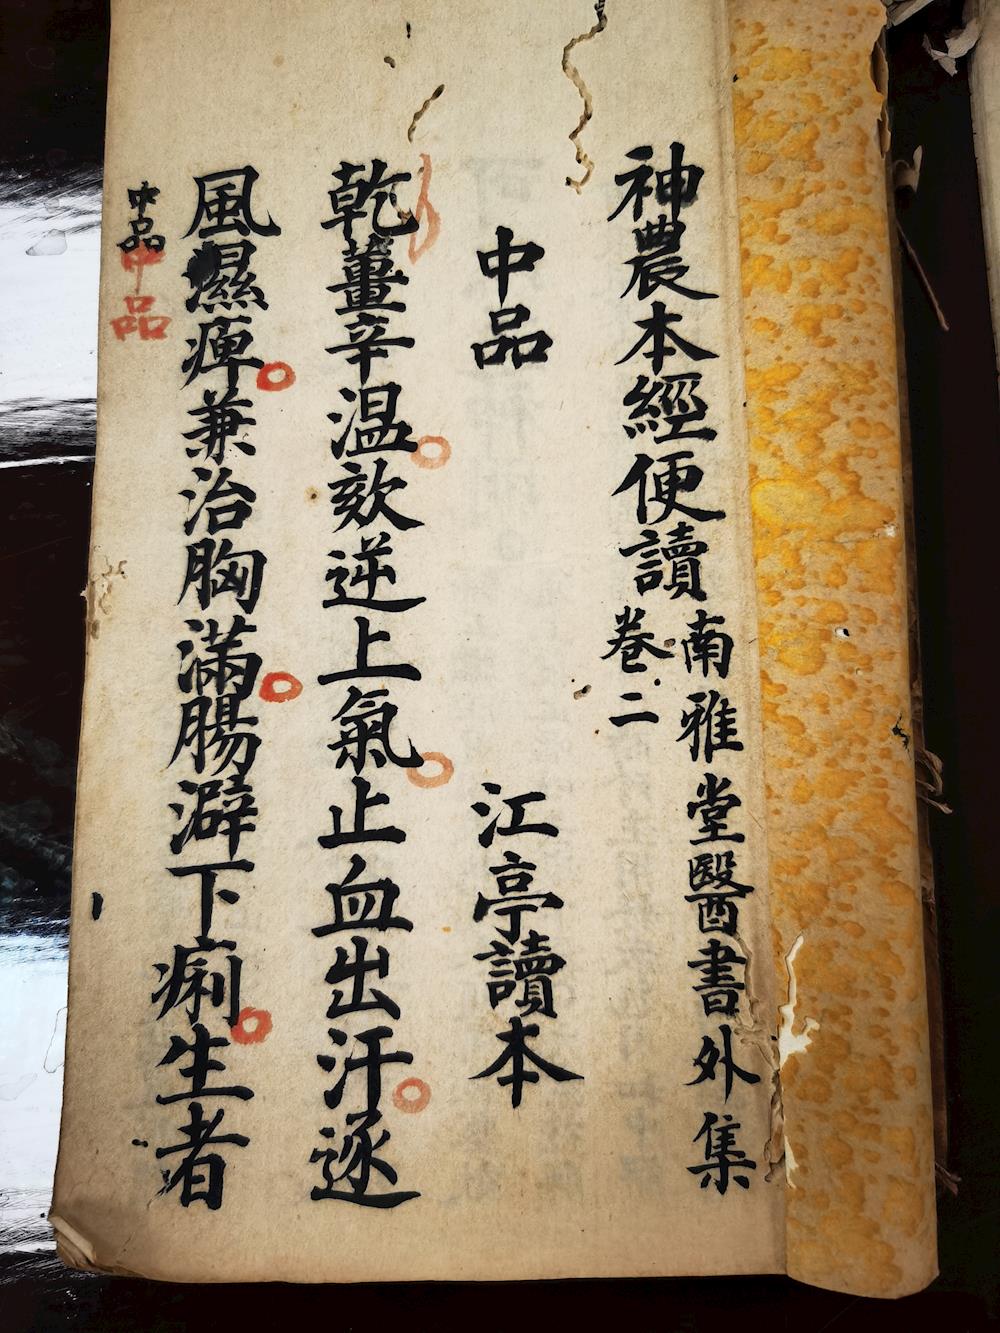 神農本經便讀
南雅堂醫書外集
卷二
中品
江亭讀本
乾薑辛温欬逆上氣止血出汗逐
風濕痺兼治胸滿腸澼下痢生者
中品
中品